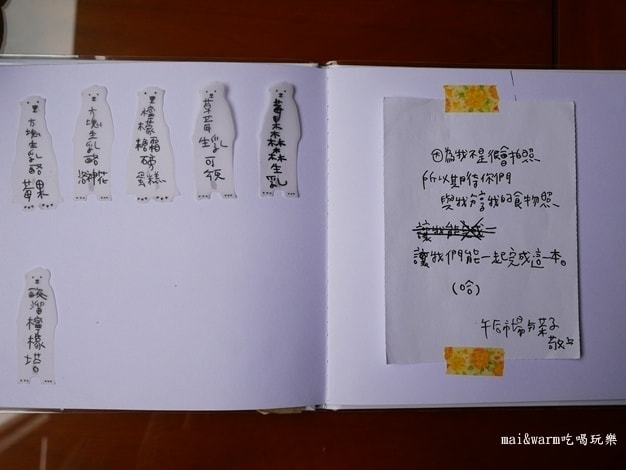 方塊生乳酪莓果
方塊生乳酪洛神花
檸檬糖霜磅蛋糕
草莓生乳可頌
莓果森林生乳
酸溜檸檬塔
因為我不是很會拍照
所以期待你們
與我分享我的食物照
讓我們能一起完成這一本。
(哈)
午后市場分菜子
敬上
mai&warm吃喝玩樂